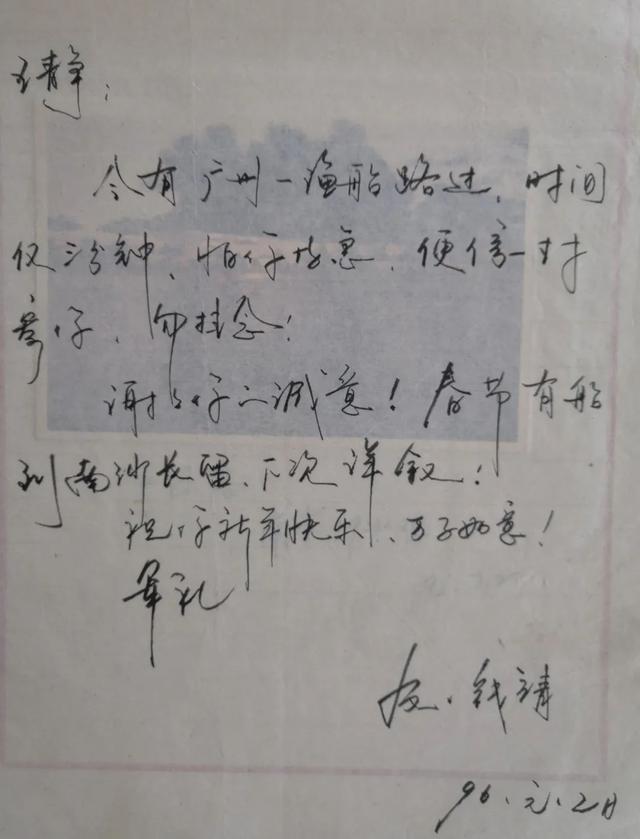 王静:
今有广州一渔船路过,时间
仅三分钟,怕你着急,便信一封
寄你,勿挂念!
谢谢你的诚意!春节有船
到南沙长礁,下次详叙!
祝你新年快乐,万事如意!
军礼
友、钱靖
96.元.2日